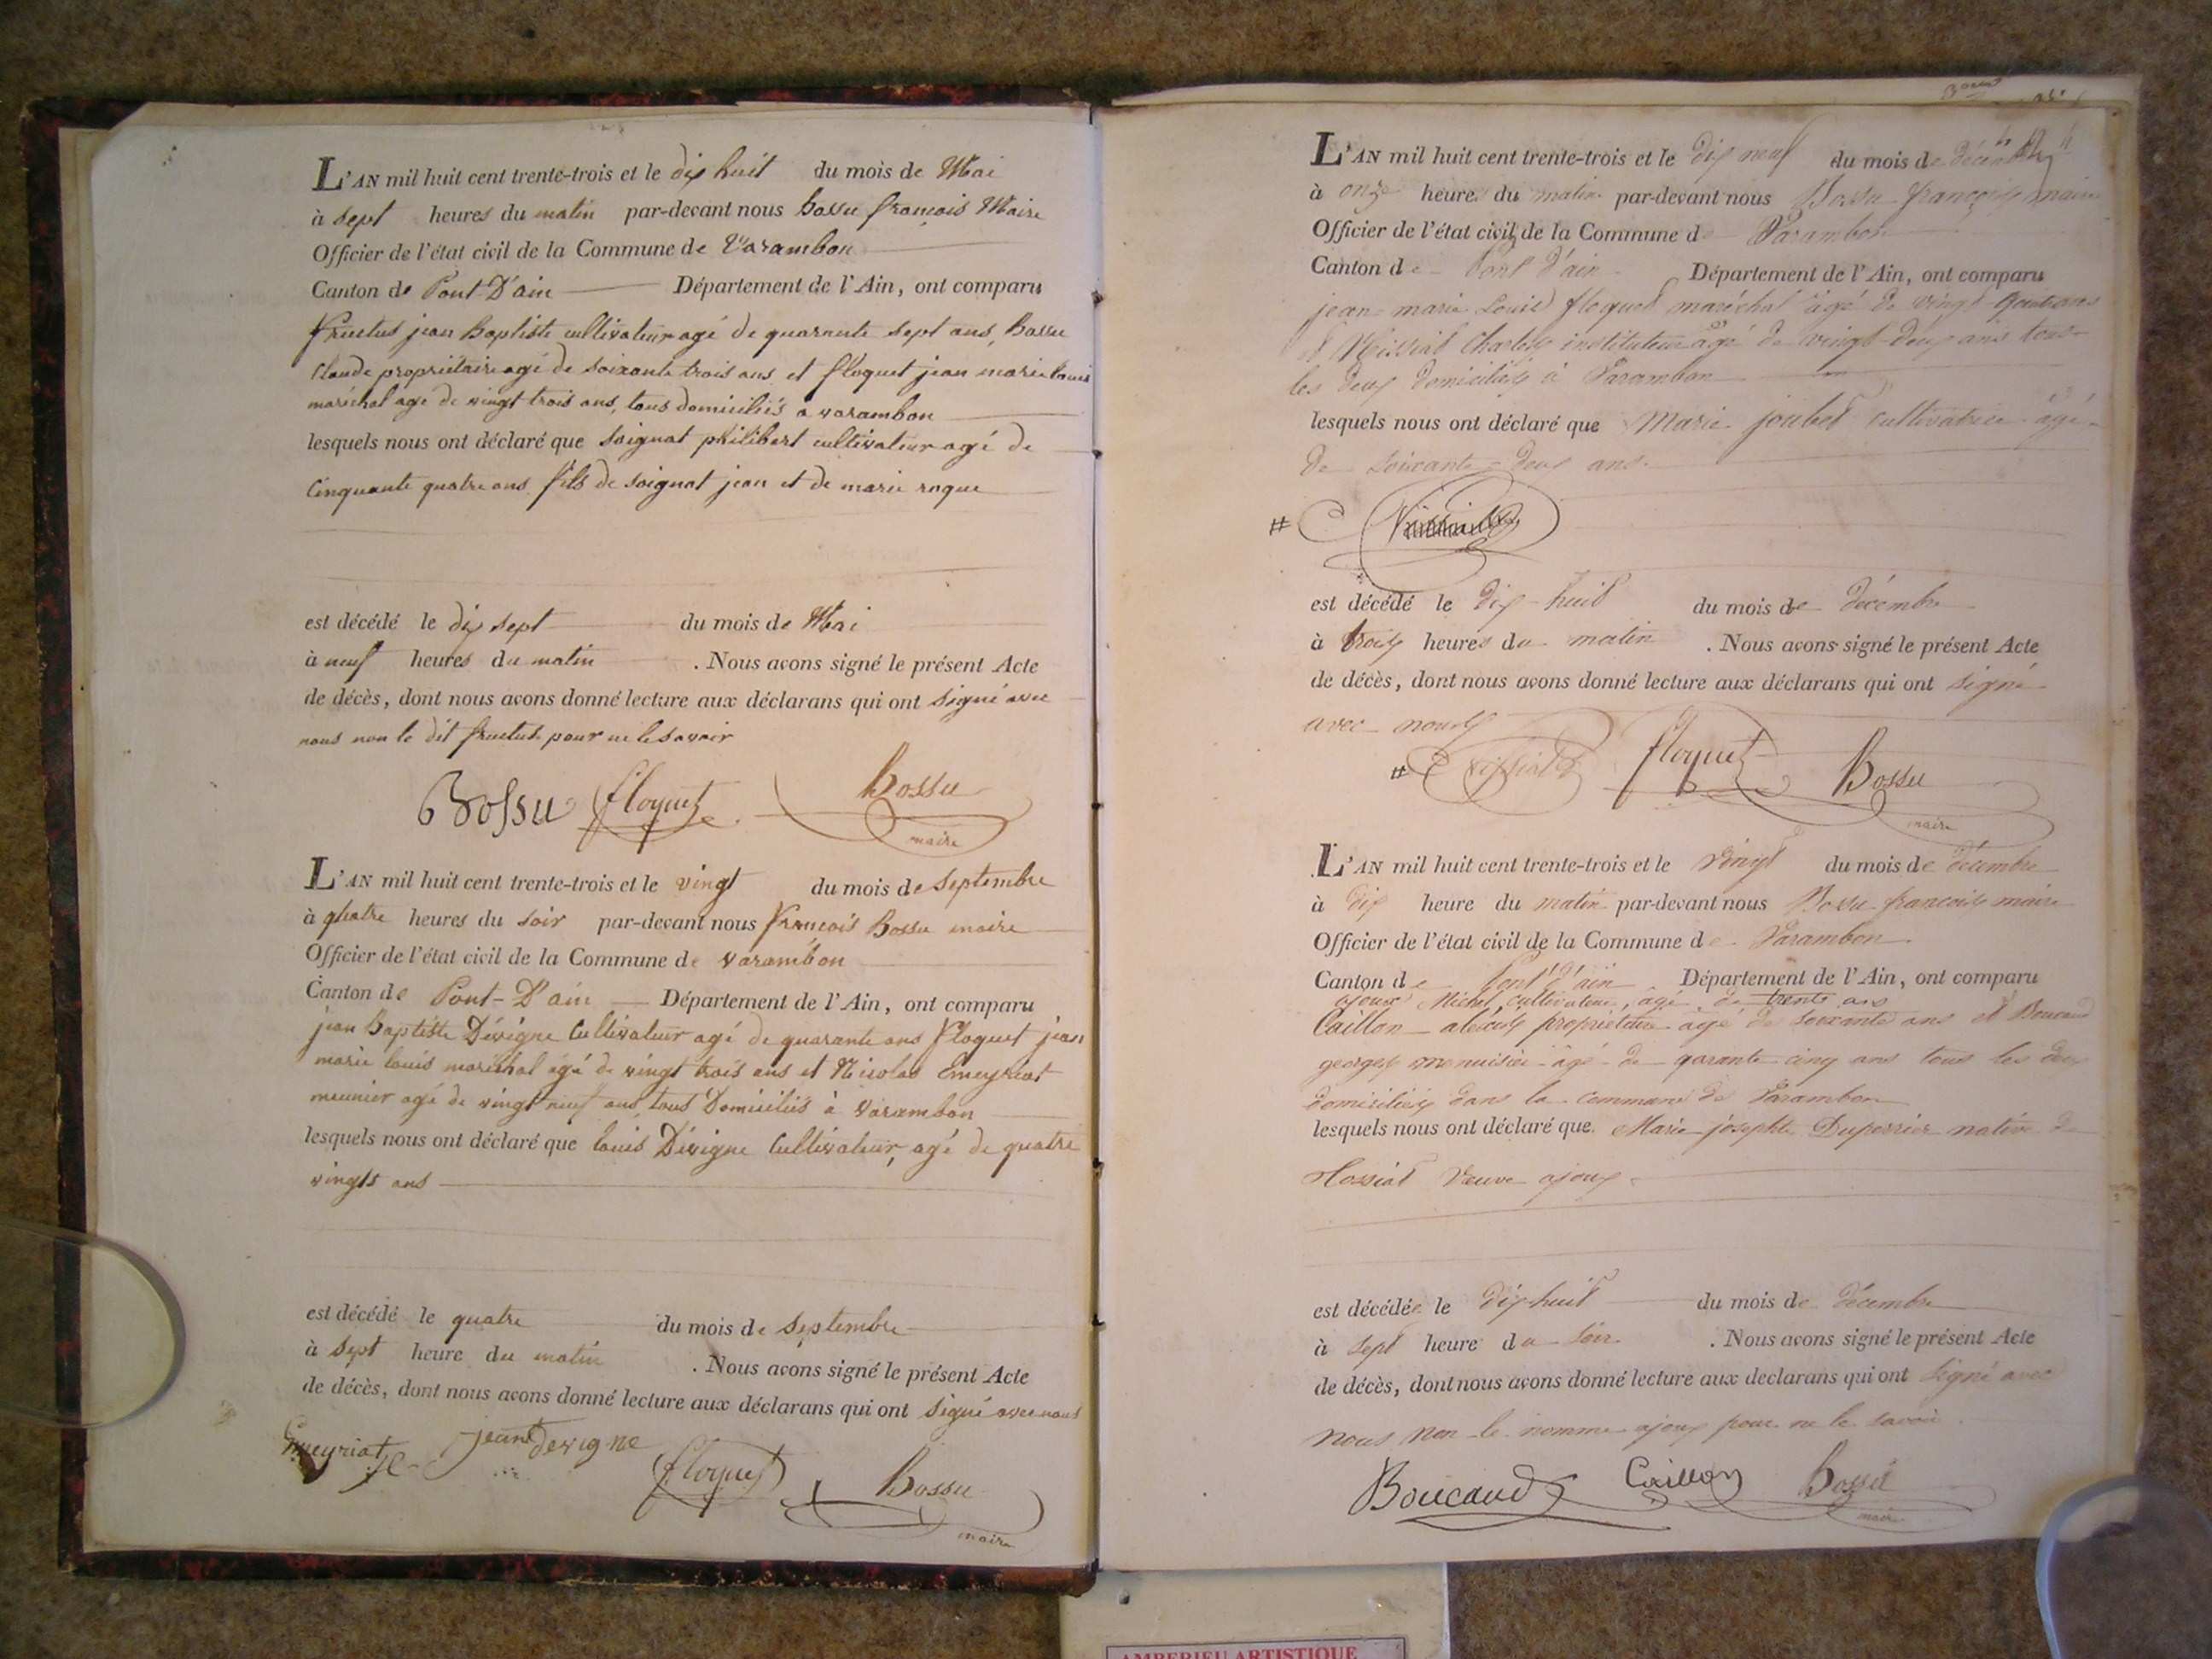 L'AN mil huit cent trente-trois et le dix huit du mois de Mai
à sept heures du matin par-devant nous Bossu françois Maire
Officier de l'état civil de la Commune de Varambon
Canton de Pont-D'ain Département de l'Ain, ont comparu
fructus jean Baptiste cultivateur agé de quarante sept ans, Bossu
Claude propriétaire agé de soixante trois ans et floquet jean marie louis
maréchal agé de vingt trois ans, tous domiciliés a varambon
lesquels nous ont déclaré que soignat philibert cultivateur agé de
Cinquante quatre ans fils de soignat jean et de marie
est décédé le dix sept du mois de Mai
à neuf heures du matin . Nous avons signé le présent Acte
de décès, dont nous avons donné lecture aux déclarans qui ont signé avec
nous non le dit fructus pour ne le savoir
Bossu floquet Bossu
maire
L'AN mil huit cent trente-trois et le vingt du mois de septembre
à quatre heures du soir par-devant nous françois Bossu maire
Officier de l'état civil de la Commune de varambon
Canton de Pont-D'ain Département de l'Ain, ont comparu
jean Baptiste Dévigne Cultivateur agé de quarante ans floquet jean
marie louis maréchal âgé de vingt trois ans et Nicolas Emeyriat
meunier agé de vingt neuf ans tous Domiciliés à varambon
lesquels nous ont déclaré que louis Dévigne Cultivateur, agé de quatre
vingts ans
est décédé le quatre du mois de septembre
à sept heure du matin . Nous avons signé le présent Acte
de décès, dont nous avons donné lecture aux déclarans qui ont signé avec nous
Emeyriat jean devigne
floquet Bossu
maire
L'AN mil huit cent trente-trois et le dix neuf du mois de décembre
à onze heures du matin par-devant nous Bossu françois maire
Officier de l'état civil de la Commune de Varambon
Canton de Pont d'ain Département de l'Ain, ont comparu
jean-marie Louis floquet maréchal âgé de vingt quatre ans
et Vissiat Charles instituteur âgé de vingt-deux ans tous
les deux domiciliés à Varambon
lesquels nous ont déclaré que Marie joubet cultivatrice âgée
de soixante-deux ans
#
est décédé le dix-huit du mois de décembre
à trois heures du matin . Nous avons signé le présent Acte
de décès, dont nous avons donné lecture aux déclarans qui ont signé
avec nous
# Vissiat floquet Bossu
maire
L'AN mil huit cent trente-trois et le vingt du mois de décembre
à dix heure du matin par-devant nous Bossu françois maire
Officier de l'état civil de la Commune de Varambon
Canton de Pont d'ain Département de l'Ain, ont comparu
ajoux Michel, cultivateur, âgé de trente ans
Caillon propriétaire âgé de soixante ans et Boucaud
georges menuisier âgé de qarante cinq ans tous les deux
domiciliés dans la commune de Varambon
lesquels nous ont déclaré que Marie josephte Duperrier native de
Veuve ajoux
est décédée le dix-huit du mois de décembre
à sept heure du soir . Nous avons signé le présent Acte
de décès, dont nous avons donné lecture aux declarans qui ont signé avec
nous non le nommé ajoux pour ne le savoir
Boucaud Caillon Bossu
maire
AMBERIEU ARTISTIQUE